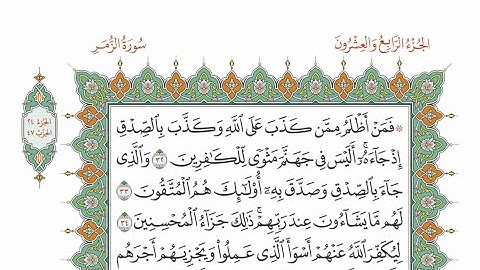 الجُزْءُ الرَّابِعُ وَالعِشْرُونَ
سُورَةُ الزُّمَرِ
الجُزْءُ ٢٤
الحِزْبُ ٤٧
۞ فَمَنْ أَظْلَمُ مِمَّن كَذَبَ عَلَى ٱللَّهِ وَكَذَّبَ بِٱلصِّدْقِ
إِذْ جَآءَهُۥٓ ۚ أَلَيْسَ فِى جَهَنَّمَ مَثْوًى لِّلْكَٰفِرِينَ ٣٢ وَٱلَّذِى
جَآءَ بِٱلصِّدْقِ وَصَدَّقَ بِهِۦٓ ۙ أُو۟لَٰٓئِكَ هُمُ ٱلْمُتَّقُونَ ٣٣
لَهُم مَّا يَشَآءُونَ عِندَ رَبِّهِمْ ۚ ذَٰلِكَ جَزَآءُ ٱلْمُحْسِنِينَ ٣٤
لِيُكَفِّرَ ٱللَّهُ عَنْهُمْ أَسْوَأَ ٱلَّذِى عَمِلُوا۟ وَيَجْزِيَهُمْ أَجْرَهُم